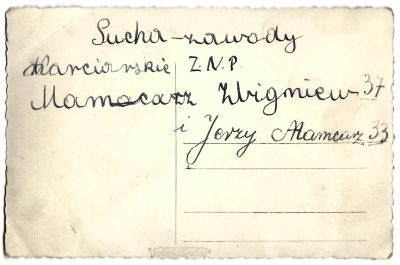 Sucha-zawody
Narciarskie Z.N.P.
Mamcarz Zbigniew 37
i Jerzy Mamcarz 33